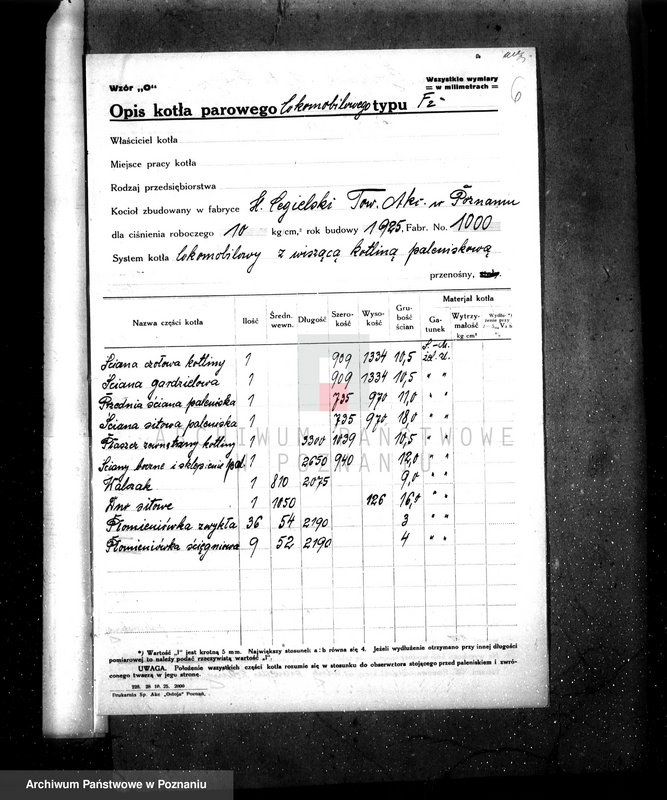 6
Wzór „O“
Wszystkie wymiary
= w milimetrach =
Opis kotła parowego lokomobilowego typu F2-
Właściciel kotła
Miejsce pracy kotła
Rodzaj przedsiębiorstwa
Kocioł zbudowany w fabryce H. Cegielski Tow. Akc. w Poznaniu
dla ciśnienia roboczego 10 kg/cm,² rok budowy 1925. Fabr. No. 1000
System kotła lokomobilowy z wiszącą kotliną paleniskową
przenośny,
Nazwa części kotła Ilość Średn. wewn. Długość Szerokość Wysokość Grubość ścian Materjał kotła
Gatunek Wytrzymałość kg cm²
S.-M. żel. zl.
Ściana czołowa kotliny 1 909 1334 10,5
Ściana gardzielowa 1 909 1334 10,5 " "
Przednia ściana paleniska 1 735 970 11,0 " "
Ściana sitowa paleniska 1 735 970 18,0 " "
Płaszcz zewnętrzny kotliny 1 3300 1039 10,5 " "
Ściany boczne i sklepienie pal. 1 2650 940 12,0 " "
Walczak 1 810 2075 9,0 " "
Dno sitowe 1 1050 126 16,0 " "
Płomieniówka zwykła 36 54 2190 3 " "
Płomieniówka ściągniowa 9 52 2190 4 " "
*) Wartość „l" jest krotną 5 mm. Największy stosunek a:b równa się 4. Jeżeli wydłużenie otrzymano przy innej długości
pomiarowej to należy podać rzeczywistą wartość „l".
UWAGA. Położenie wszystkich części kotła rozumie się w stosunku do obserwatora stojącego przed paleniskiem i zwró-
conego twarzą w jego stronę.
228. 28 10. 25. 2000
Drukarnia Sp. Akc „Ostoja" Poznań.
ARCHIWUM PAŃSTWOWE
W POZNANIU
Archiwum Państwowe w Poznaniu